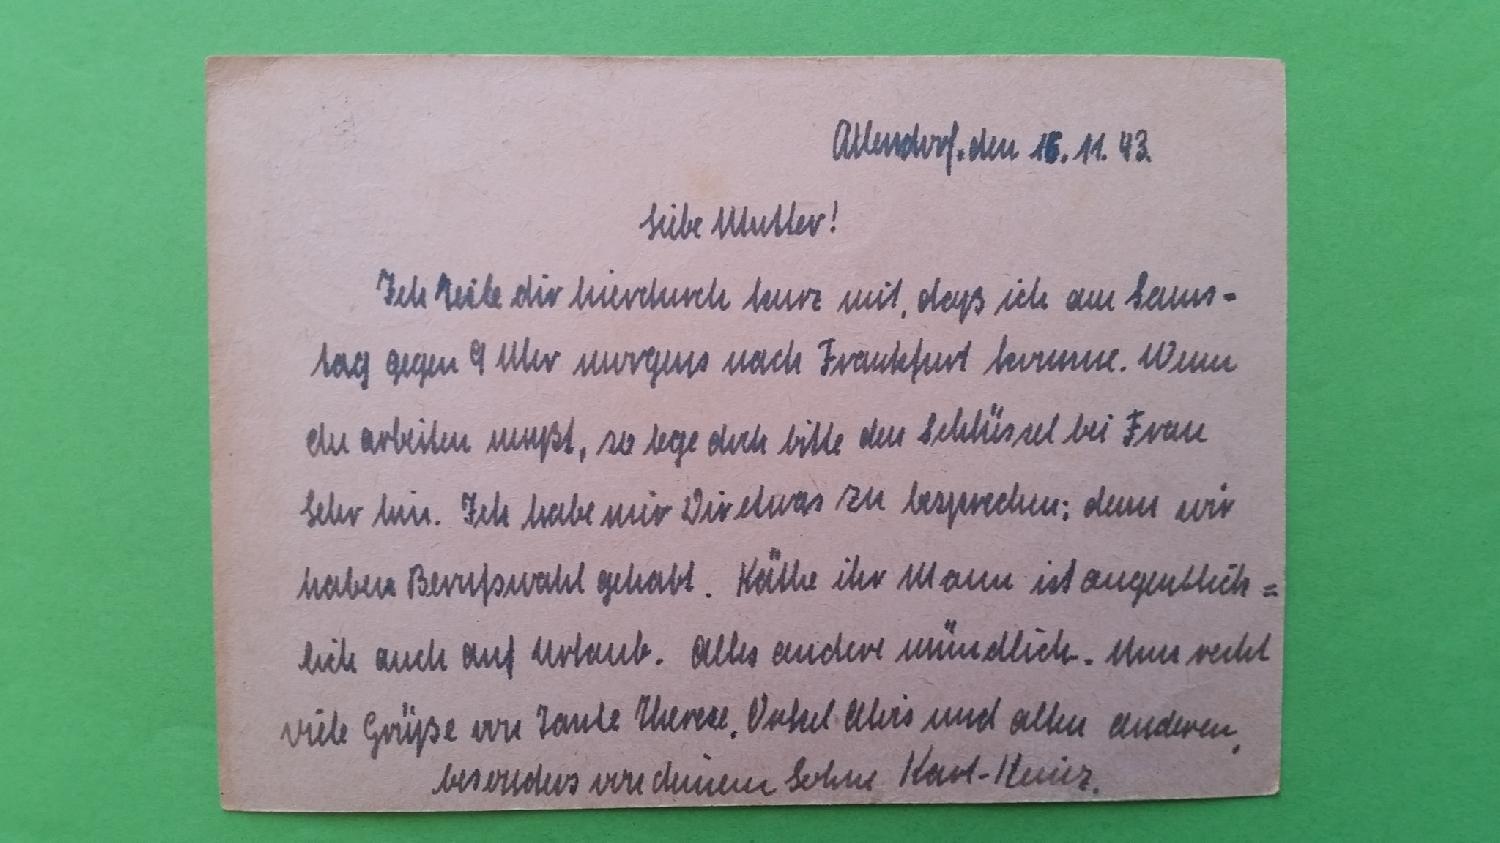 Allendorf, den 16.11.43.
Liebe Mutter!
Ich teile dir hierdurch kurz mit, daß ich am Sams-
tag gegen 9 Uhr morgens nach Frankfurt komme. Wenn
du arbeiten mußt, so lege doch bitte den Schlüssel bei Frau
hin. Ich habe mir Dir etwas zu besprechen; denn wir
haben Berufswahl gehabt. Käthe ihr Mann ist augenblick=
lich auch auf Urlaub. Alles andere mündlich. Nun recht
viele Grüße von Tante Therese, Onkel und allen anderen,
besonders von deinem Sohne Karl-Heinz.